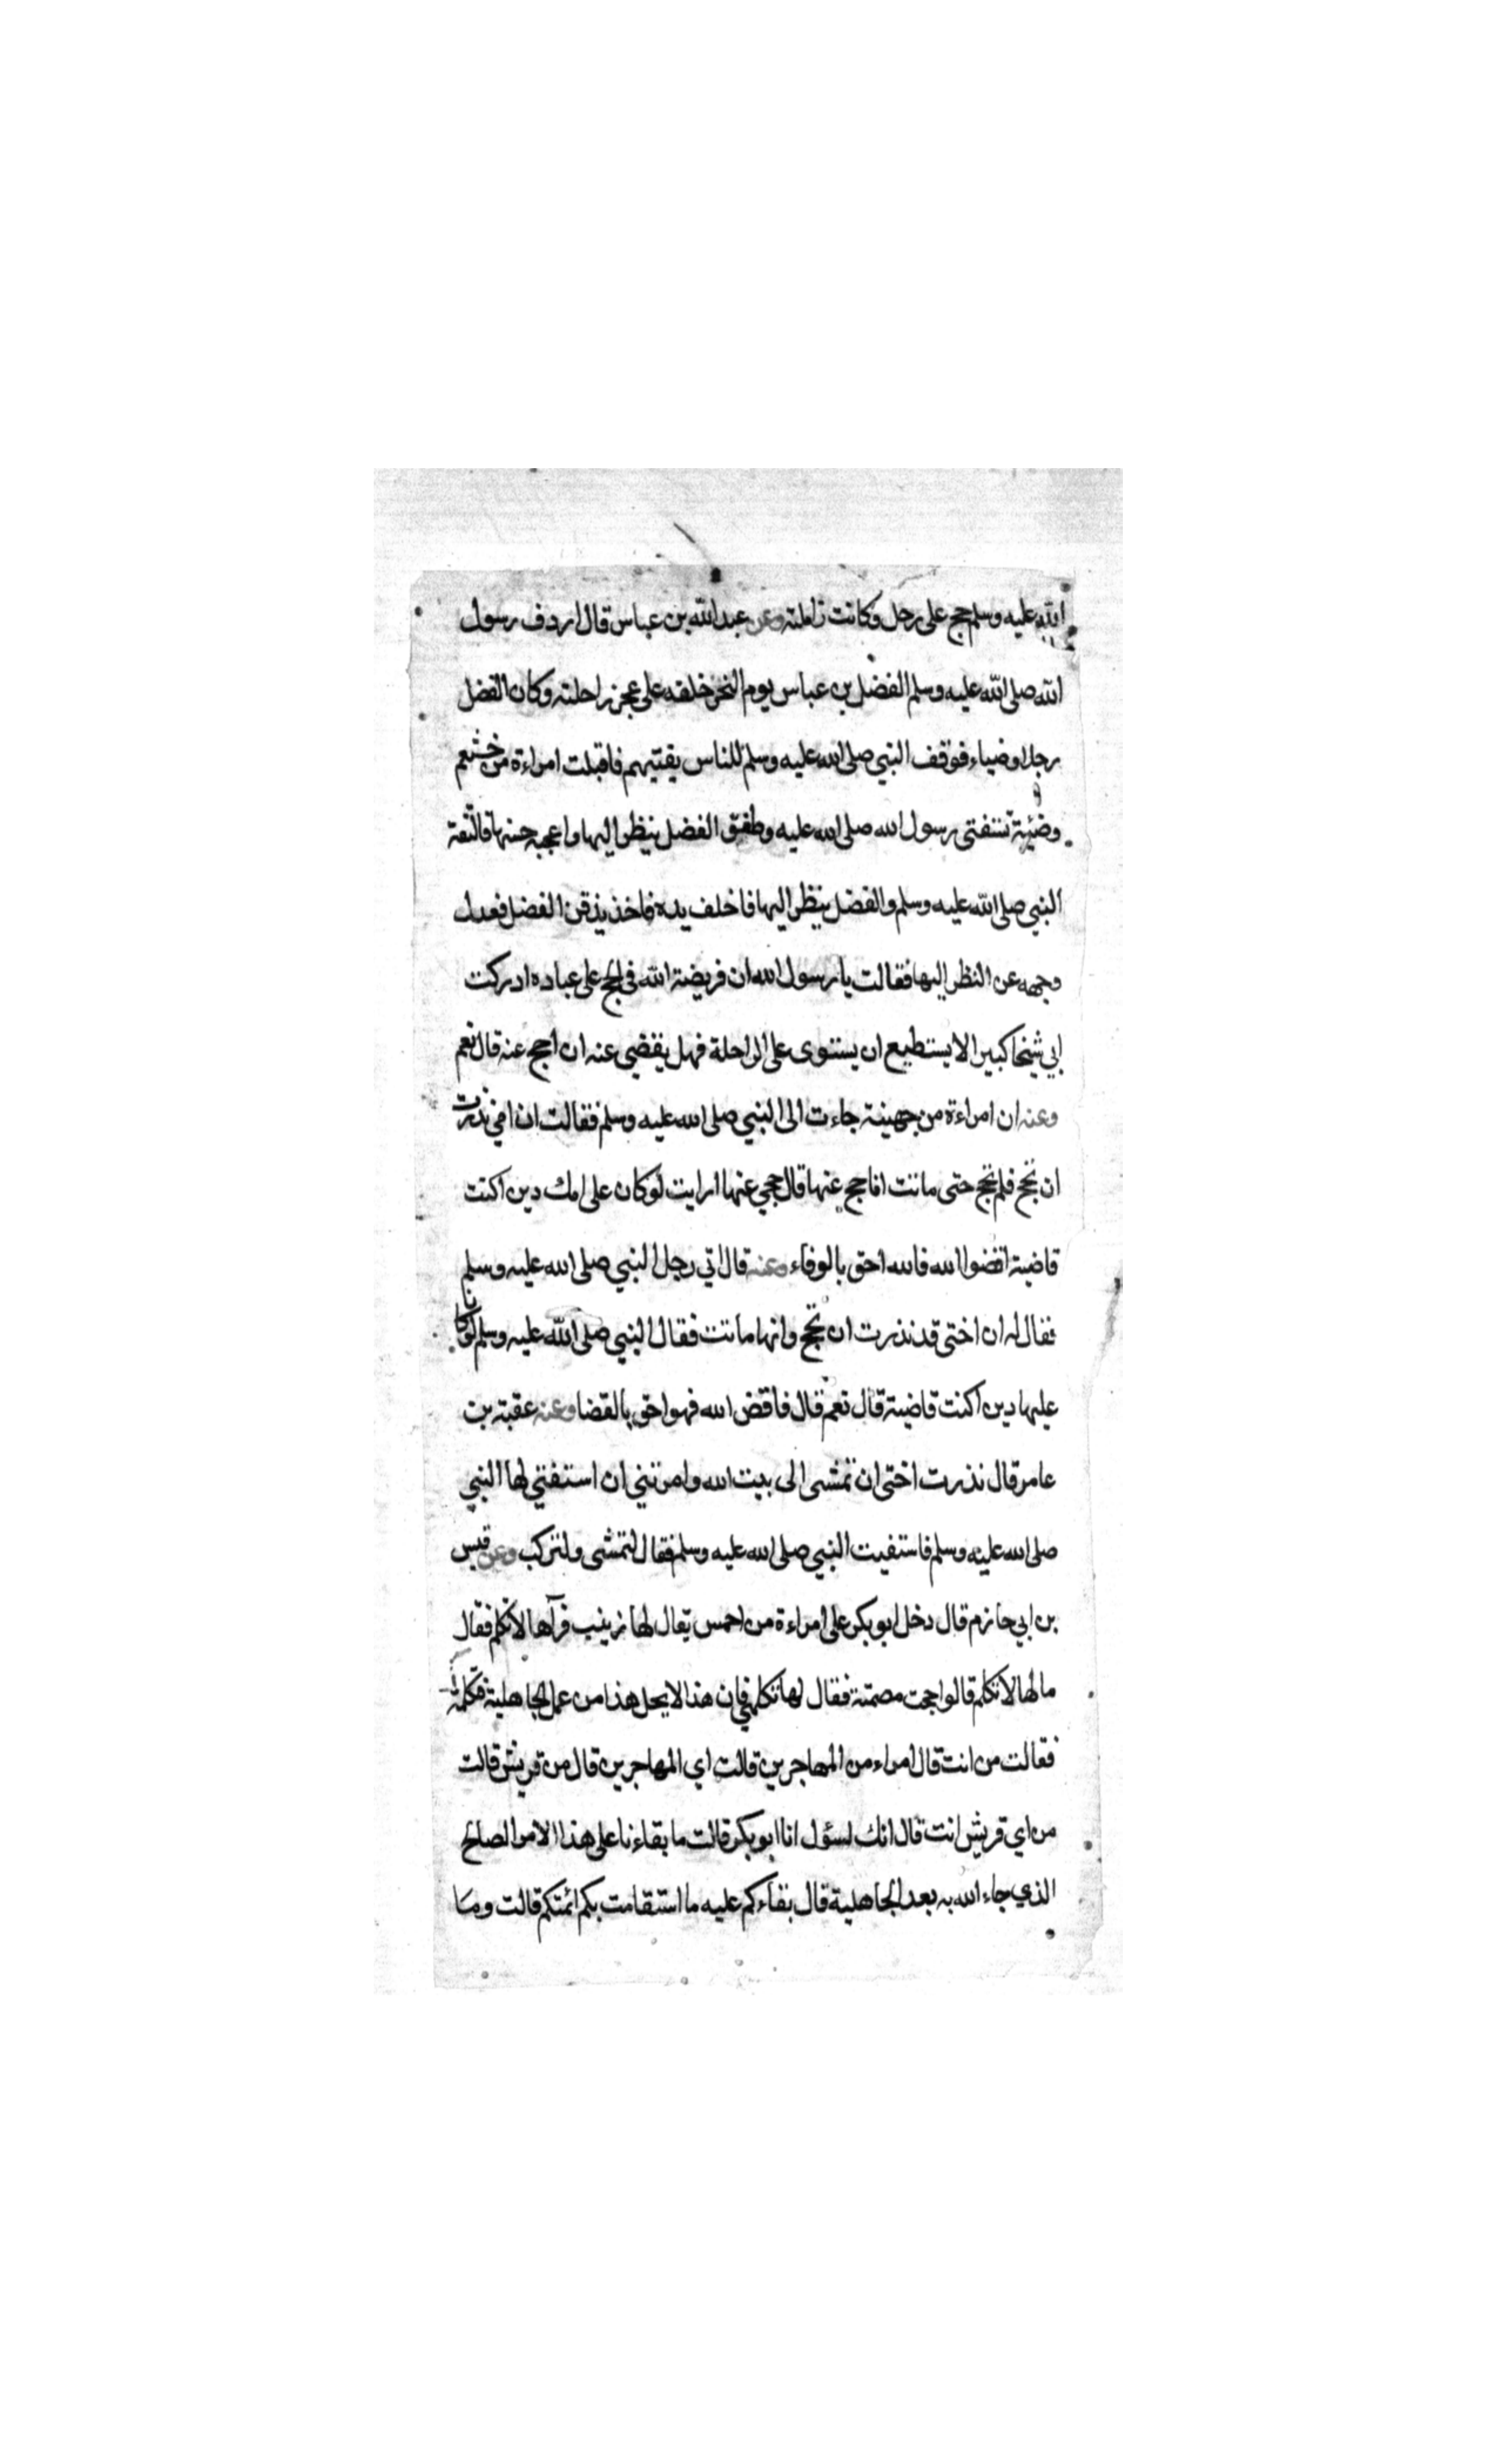 الله عليه وسلم حج على رحل وكانت زاملته وعن عبد الله بن عباس قال اردف رسول
الله صلى الله عليه وسلم الفضل بن عباس يوم النحر خلفه على عجز راحلته وكان الفضل
رجلا وضياء فوقف النبي صلى الله عليه وسلم للناس يفتيهم فاقبلت امراءة من خثعم
وضئية تستفتى رسول الله صلى الله عليه وطفق الفضل ينظر اليها واعجبه حسنها فالتفة
النبي صلى الله عليه وسلم والفضل ينظر اليها فاخلف يده فاخذ يذقن الفضل فعدل
وجهه عن النظر اليها فقالت يا رسول الله ان فريضة الله فى الحج على عباده ادركت
ابي شيخا كبيرا لا يستطيع ان يستوى على الراحلة فهل يقضي عنه ان احج عنه قال نعم
وعنه ان امراءة من جهينة جاءت الى النبي صلى الله عليه وسلم فقالت ان امي نذرت
ان تحج فلم تحج حتى ماتت افاحج عنها قال حجي عنها ارايت لو كان على امك دين اكنت
قاضية اقضوا الله فالله احق بالوفاء وعنه قال اتي رجل النبي صلى الله عليه وسلم
فقال له ان اختى قد نذرت ان تحج وانها ماتت فقال النبي صلى الله عليه وسلم لو كان
عليها دين اكنت قاضية قال نعم قال فاقض الله فهو احق بالقضا وعنه عقبة بن
عامر قال نذرت اختى ان تمشى الى بيت الله وامرتني ان استفتي لها النبي
صلى الله عليه وسلم فاستفيت النبي صلى الله عليه وسلم فقال لتمشى ولتركب وعن قيس
بن ابي حازم قال دخل ابو بكر على امراءة من احمس يقال لها زينب فرآها لا تكلم فقال
ما لها لا تكلم قالوا حجت مصمتة فقال لها تكلمي فان هذا لا يحل هذا من عمل الجاهلية فتكلمت
فقالت من انت قال امراء من المهاجرين قالت اي المهاجرين قال من قريش قالت
من اي قريش انت قال انك لسؤل انا ابو بكر قالت ما بقاءنا على هذا الامر الصالح
الذي جاء الله به بعد الجاهلية قال بقاءكم عليه ما استقامت بكم ائمتكم قالت وما